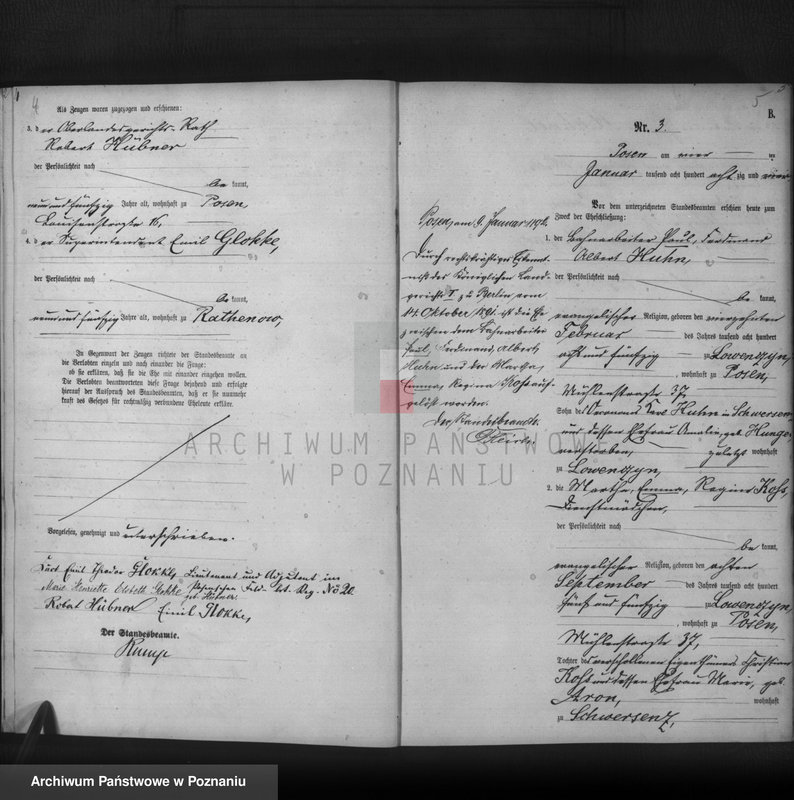 4
Als Zeugen waren zugezogen und erschienen:
3. der Oberlandesgerichts-Rath
Robert Hübner
der Persönlichkeit nach
be kannt,
neunundfünfzig Jahre alt, wohnhaft zu Posen,
Louisenstraße 16,
4. der Superintendent Emil Glokke,
der Persönlichkeit nach
be kannt,
neunundfünfzig Jahre alt, wohnhaft zu Rathenow,
In Gegenwart der Zeugen richtete der Standesbeamte an
die Verlobten einzeln und nach einander die Frage:
ob sie erklären, daß sie die Ehe mit einander eingehen wollen.
Die Verlobten beantworteten diese Frage bejahend und erfolgte
hierauf der Ausspruch des Standesbeamten, daß er sie nunmehr
kraft des Gesetzes für rechtmäßig verbundene Eheleute erkläre.
Vorgelesen, genehmigt und unterschrieben.
Emil Theodor Glokke, Lieutenant und Adjutant im
Posenschen Feld-Art. Reg. No 20
Marie Henriette Glokke
geb. Hübner.
Robert Hübner Emil Glokke,
Der Standesbeamte.
Rump
5
B.
Nr. 3.
Posen am vier ten
Januar tausend acht hundert acht zig und vier
Vor dem unterzeichneten Standesbeamten erschien heute zum
Zweck der Eheschließung:
1. der Bahnarbeiter Paul, Ferdinand
Albert Kuhn,
der Persönlichkeit nach
be kannt,
evangelischer Religion, geboren den vierzehnten
Februar des Jahres tausend acht hundert
acht und fünfzig zu Lowenzyn,
, wohnhaft zu Posen,
Mühlenstraße 37,
Sohn des Kuhn in Schwersenz
und dessen Ehefrau Amalie, geb. Hunge,
verstorben, zuletzt wohnhaft
zu Lowenzyn,
2. die Martha, Emma, Regina Kohs,
Dienstmädchen,
der Persönlichkeit nach
be kannt,
evangelischer Religion, geboren den achten
September des Jahres tausend acht hundert
fünf und fünfzig zu Lowenzyn,
, wohnhaft zu Posen,
Mühlenstraße 37,
Tochter des verschollenen Eigenthümers Christian
Kohs und dessen Ehefrau Marie, geb.
Aron, wohnhaft
zu Schwersenz,
Posen, am 9. Januar 1892.
Durch rechtskräftiges Erkennt-
niß des Königlichen Land-
gerichts I zu Berlin vom
14. Oktober 1891 ist die Ehe
zwischen dem Bahnarbeiter
Paul, Ferdinand, Albert
Kuhn und der Martha,
Emma, Regina Kohs auf-
gelöst worden.
Der Standesbeamte.
ARCHIWUM PAŃSTWOWE
W POZNANIU
Archiwum Państwowe w Poznaniu